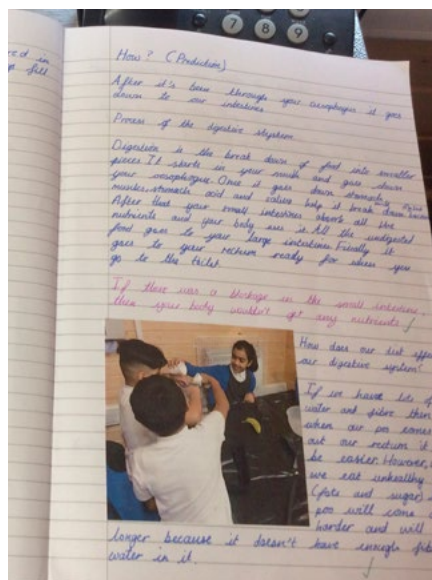 7 8 9
How? (Prediction)
After it's been through your oesophagus it goes
down to our intestines
Process of the digestive
Digestion is the break down of food into smaller
pieces. It starts in your mouth and goes down
your oesophagus. Once it goes down stomach,
muscles, stomach acid and saliva help it break down
After that your small intestines absorb all the
nutrients and your body uses it. All the undigested
food goes to your large intestines. Finally it
goes to your rectum ready for when you
go to the toilet.
If there was a blockage in the small intestine,
then your body wouldn't get any nutrients.
How does our diet
our digestive system?
If we have lots of
water and fibre
when our poo comes
out our rectum it
be easier. However,
we eat unhealthy
(fats and sugar)
poo will come
harder and will
longer because it doesn't have enough
water in it.